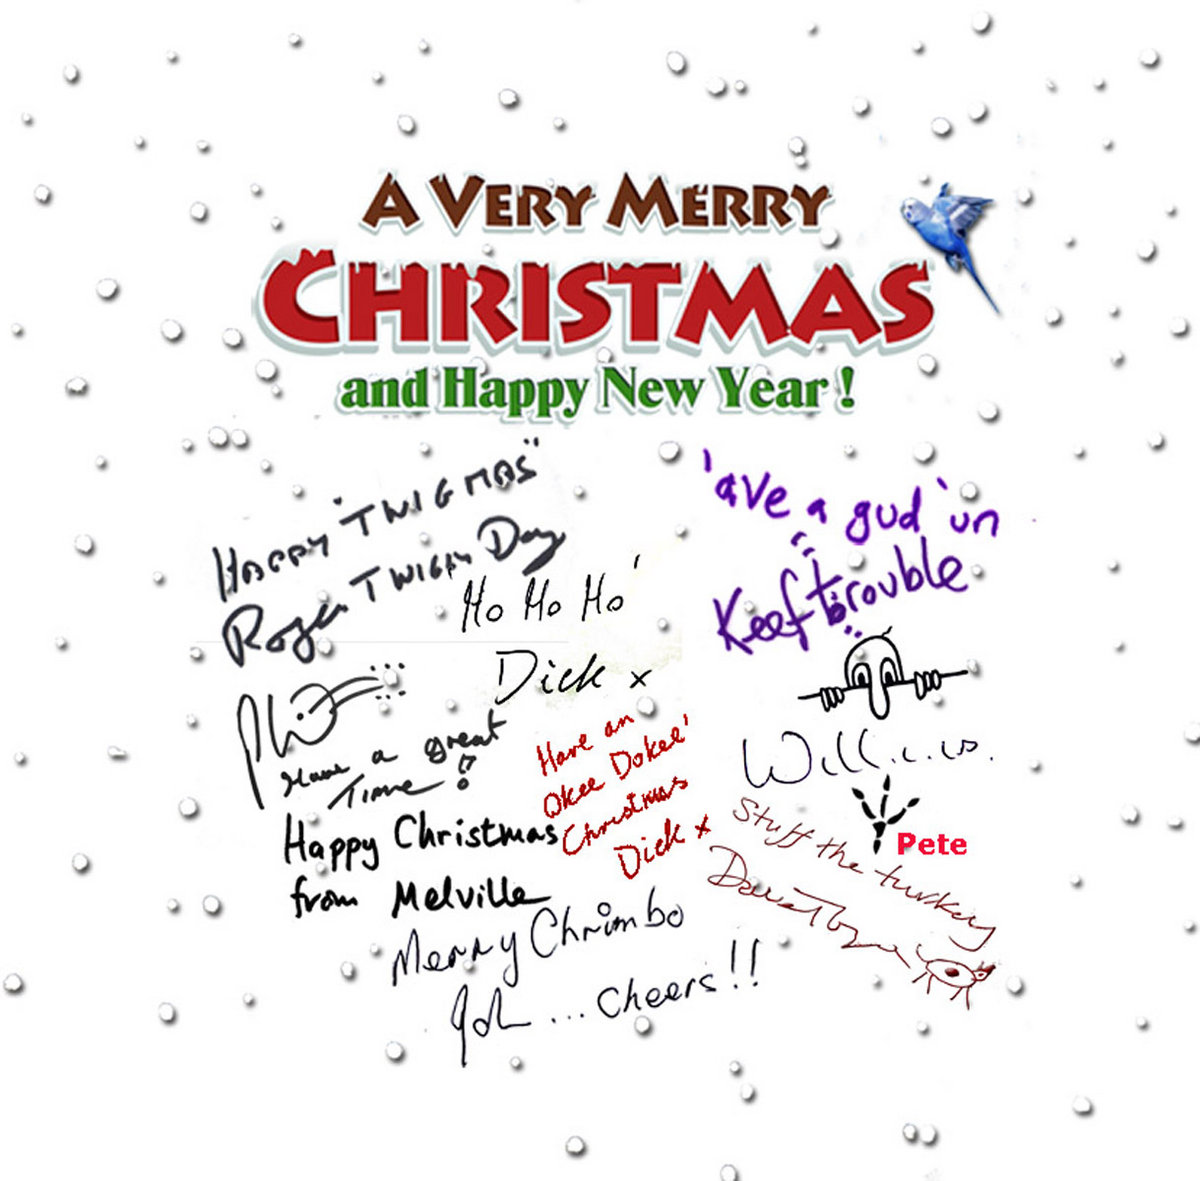 A VERY MERRY
CHRISTMAS
and Happy New Year !
HAPPY "TWIGMAS"
Roger TWIGGY Day
'ave a gud 'un
Keef trouble
Ho Ho Ho'
Dick x
Phil
Have a great
Time !!
Have an
Okee Dokee'
Christmas
Dick x
Will
Pete
Happy Christmas
from Melville
Stuff the turkey
Dave
Merry Chrimbo
John ... Cheers!!